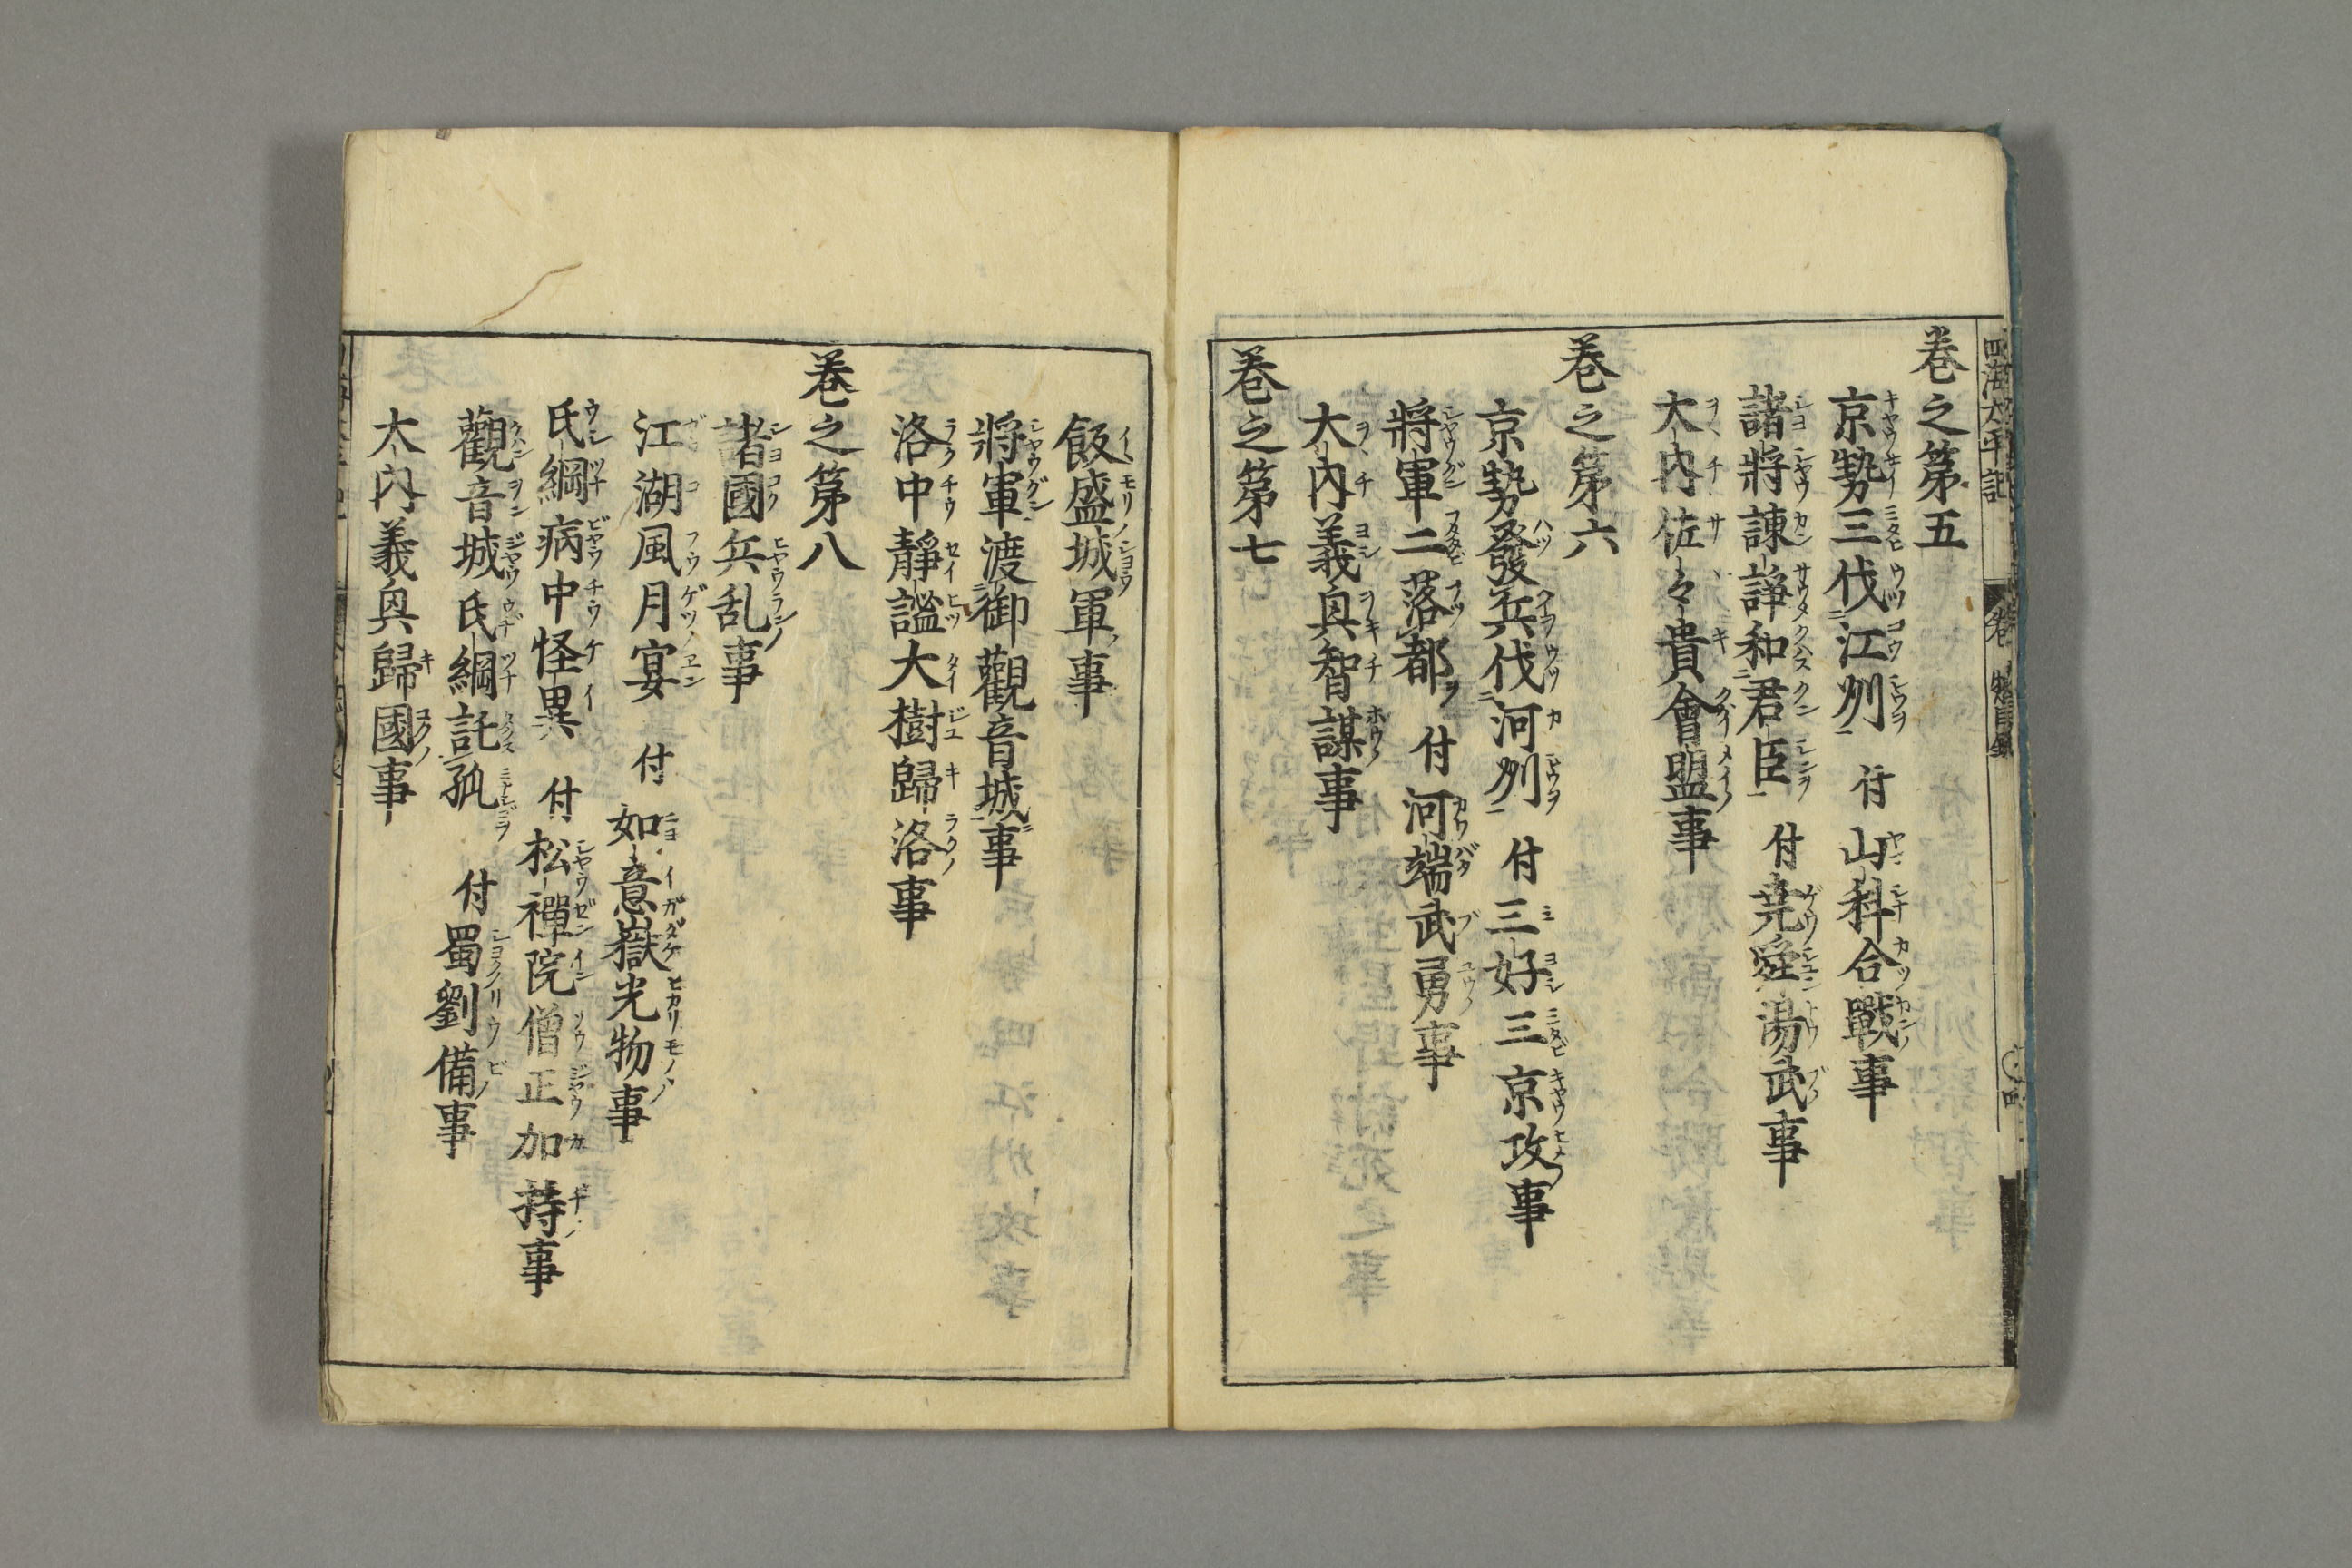 四海太平記
卷之第五
京勢三伐江州 付 山科合戰事
諸將諫諍和君臣 付 尭舜湯武事
大内佐々貴會盟事
卷之第六
京勢發兵伐河州 付 三好三京攻事
將軍二落都 付 河端武勇事
大内義奥智謀事
卷之第七
飯盛城軍事
將軍渡御觀音城事
洛中靜謐大樹歸洛事
卷之第八
諸國兵乱事
江湖風月宴 付 如意嶽光物事
氏綱病中怪異 付 松禪院僧正加持事
觀音城氏綱託孤 付 蜀劉備事
大内義奥歸國事